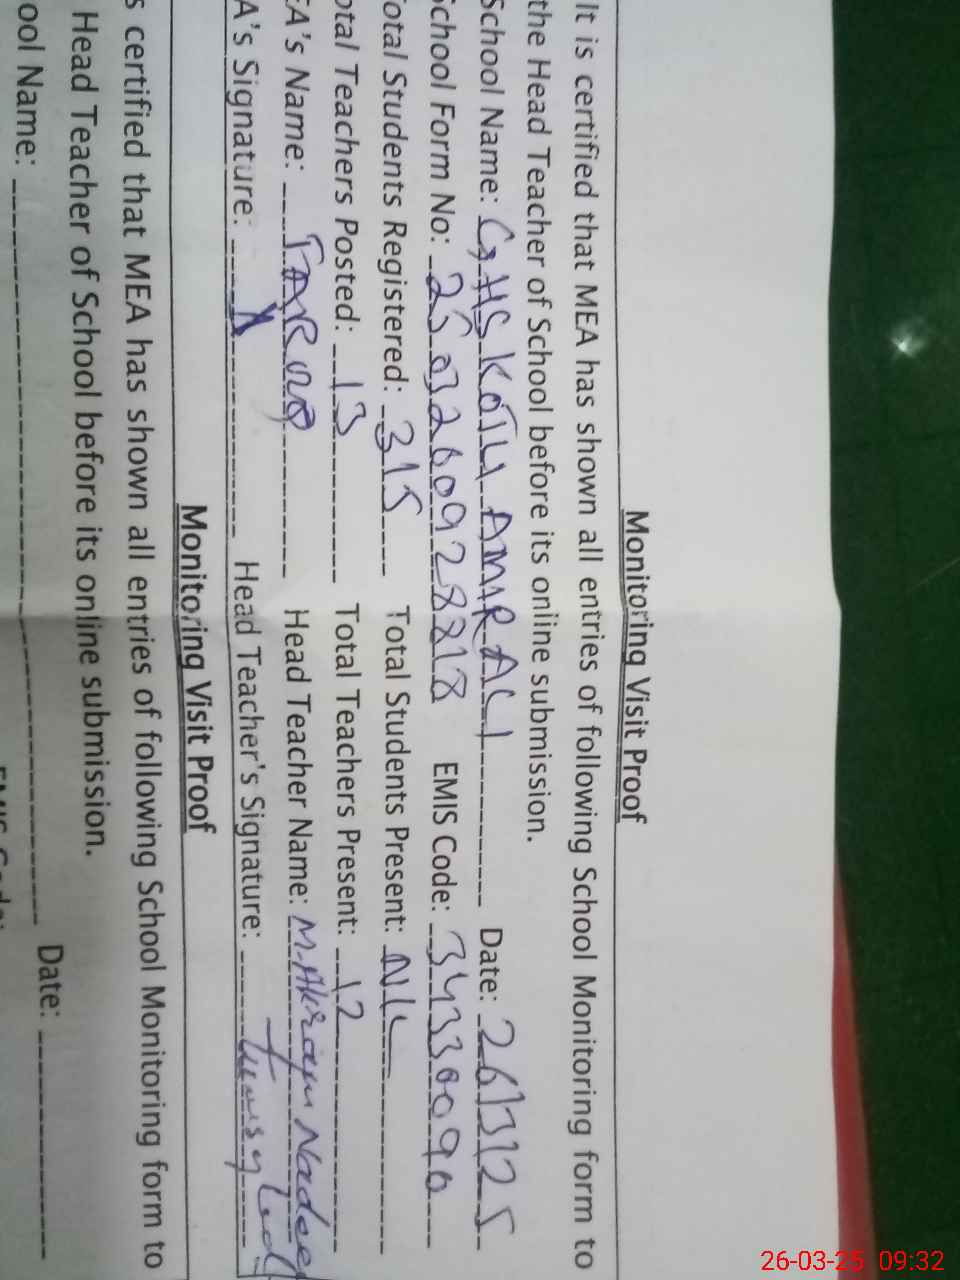 Monitoring Visit Proof
It is certified that MEA has shown all entries of following School Monitoring form to
the Head Teacher of School before its online submission.
School Name: GHS KOTLI AMIR ALI Date: 26/3/25
School Form No: 250326092818 EMIS Code: 34330090
Total Students Registered: 315 Total Students Present: NIL
otal Teachers Posted: 13 Total Teachers Present: 12
EA's Name: Head Teacher Name: M. Akram Nadee
A's Signature: Head Teacher's Signature:
Monitoring Visit Proof
s certified that MEA has shown all entries of following School Monitoring form to
Head Teacher of School before its online submission.
ool Name: Date:
EMIS Code:
26-03-25 09:32